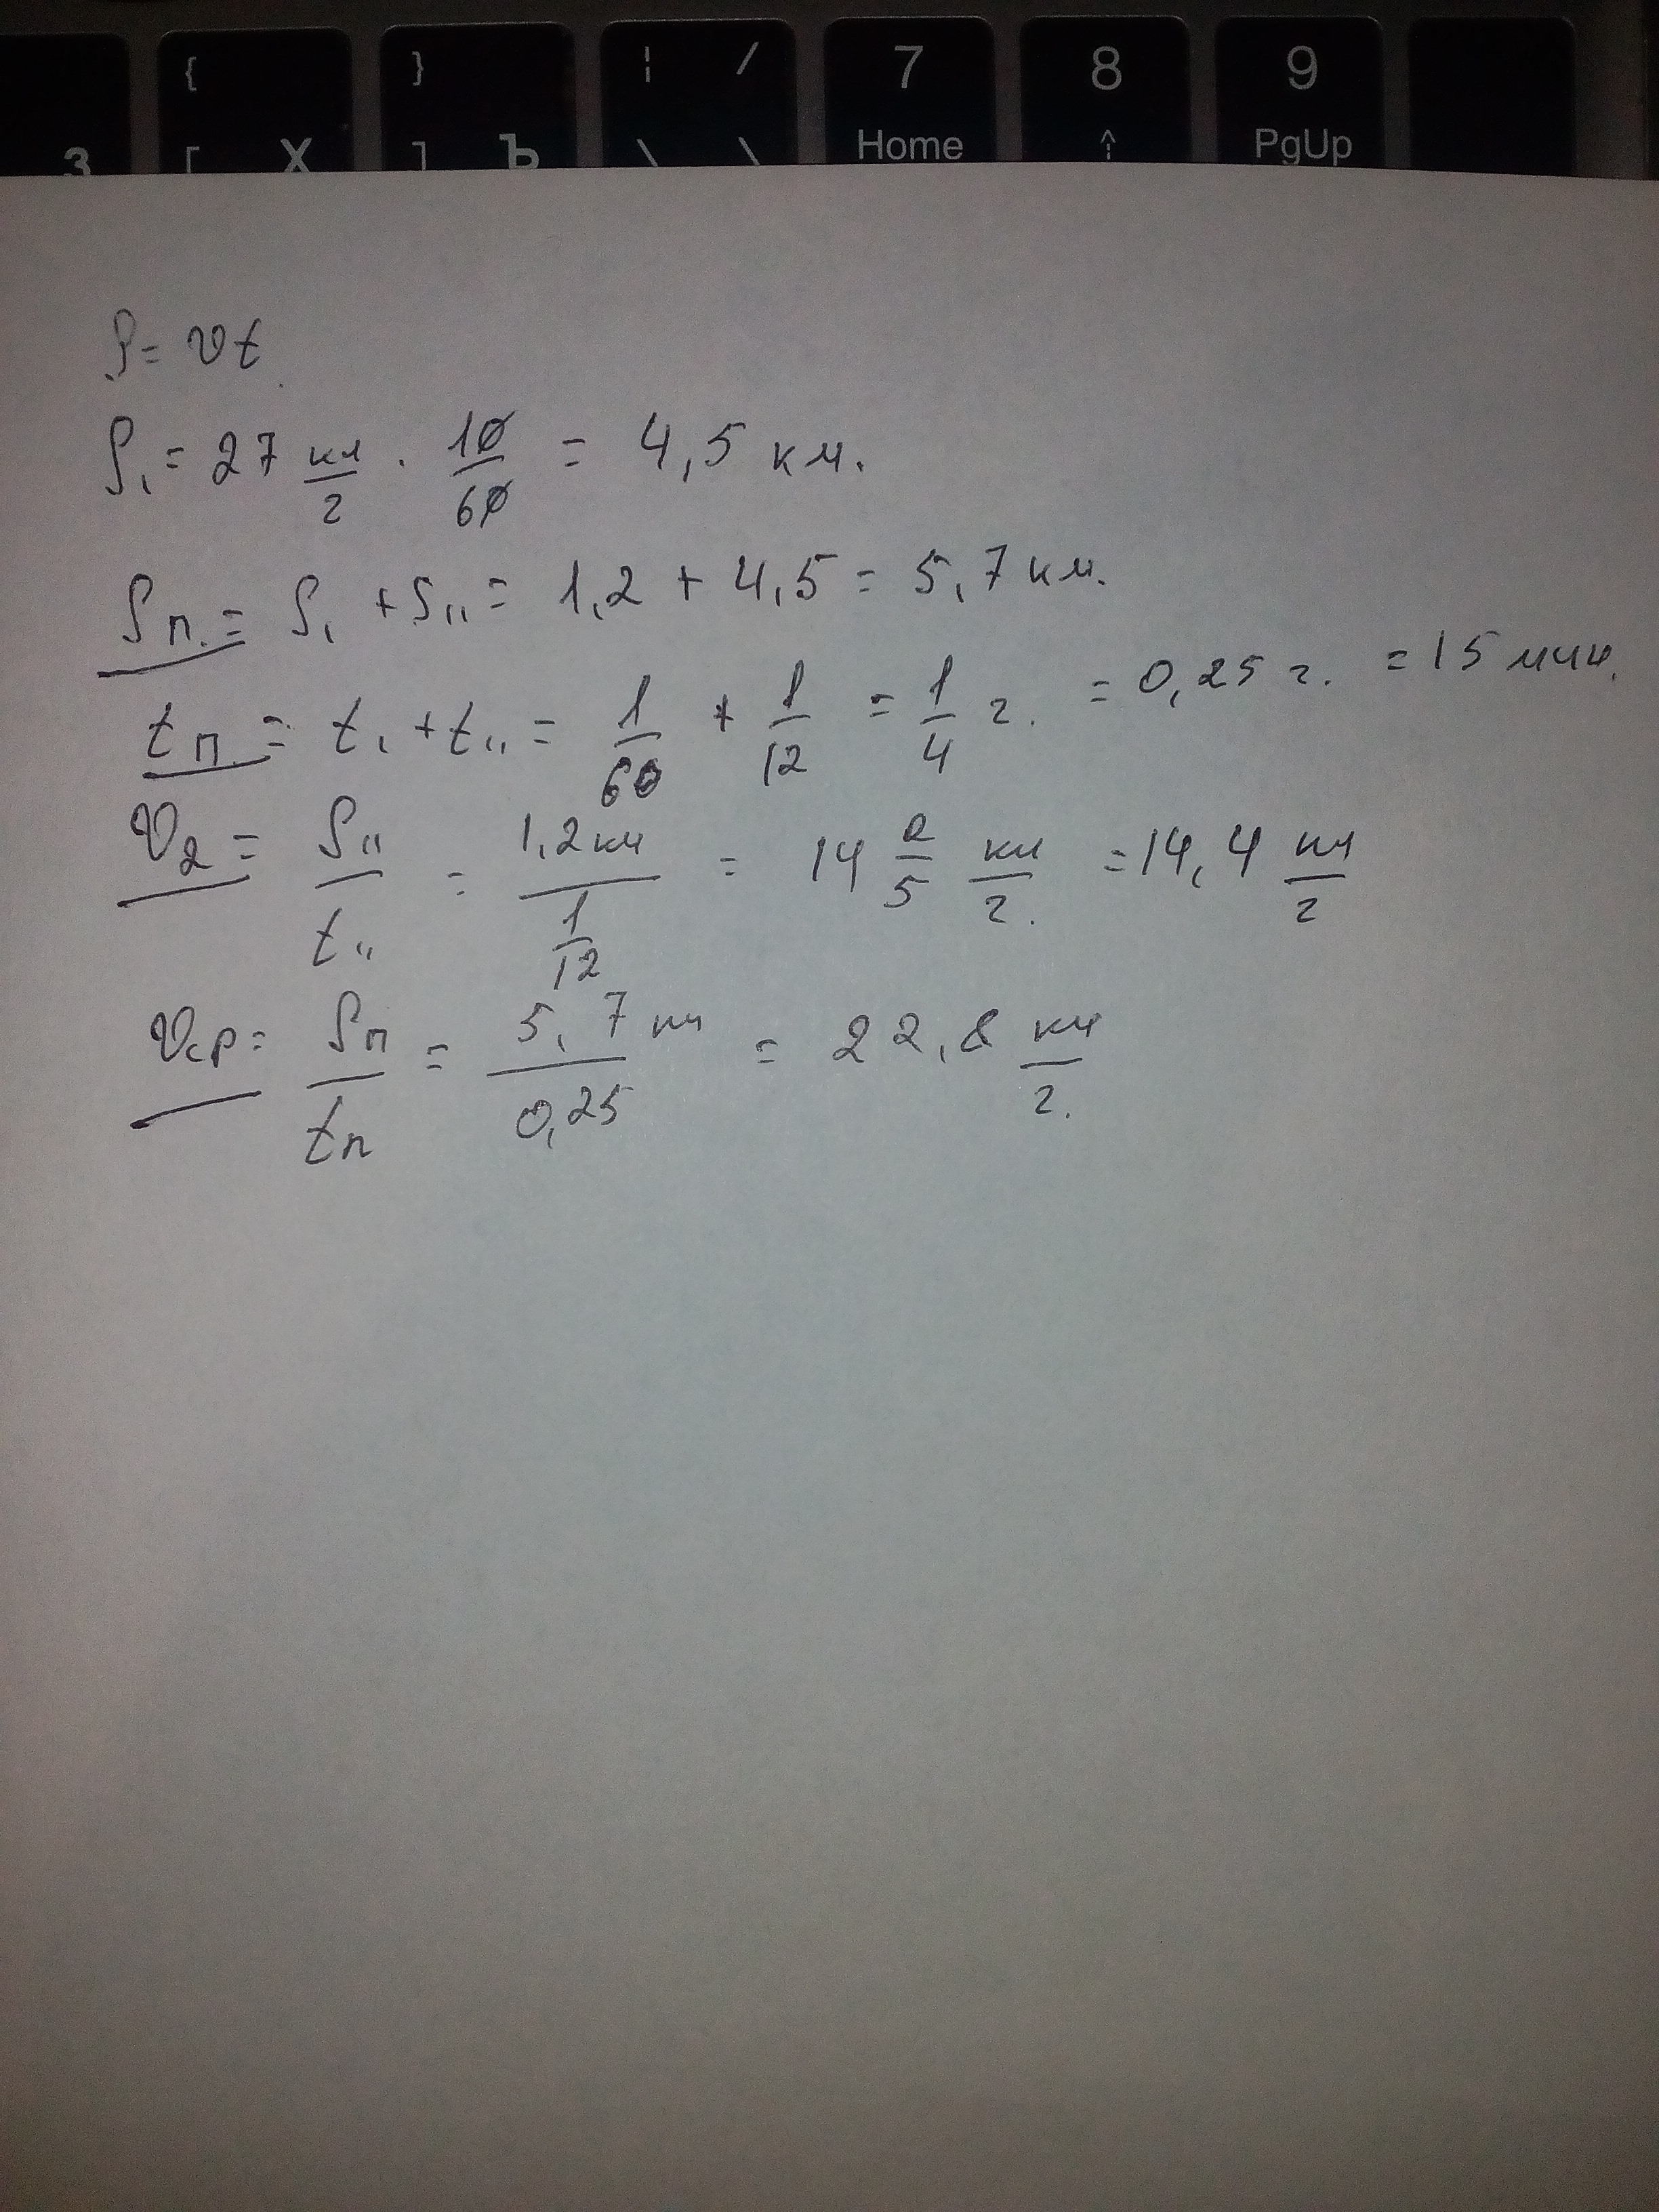 { } ¦ / 7 8 9
З [ Х ] Ъ \ \ Home ↑ PgUp
S = vt
S₁ = 27 км/г · 10/60 = 4,5 км.
Sп. = S₁ + S₁₁ = 1,2 + 4,5 = 5,7 км.
tп = t₁ + t₁₁ = 1/60 + 1/12 = 1/4 г. = 0,25 г. = 15 мин.
V₂ = S₁₁/t₁₁ = 1,2 км/(1/12) = 14 2/5 км/г. = 14,4 км/г
Vср = Sп/tп = 5,7 км/0,25 = 22,8 км/г.